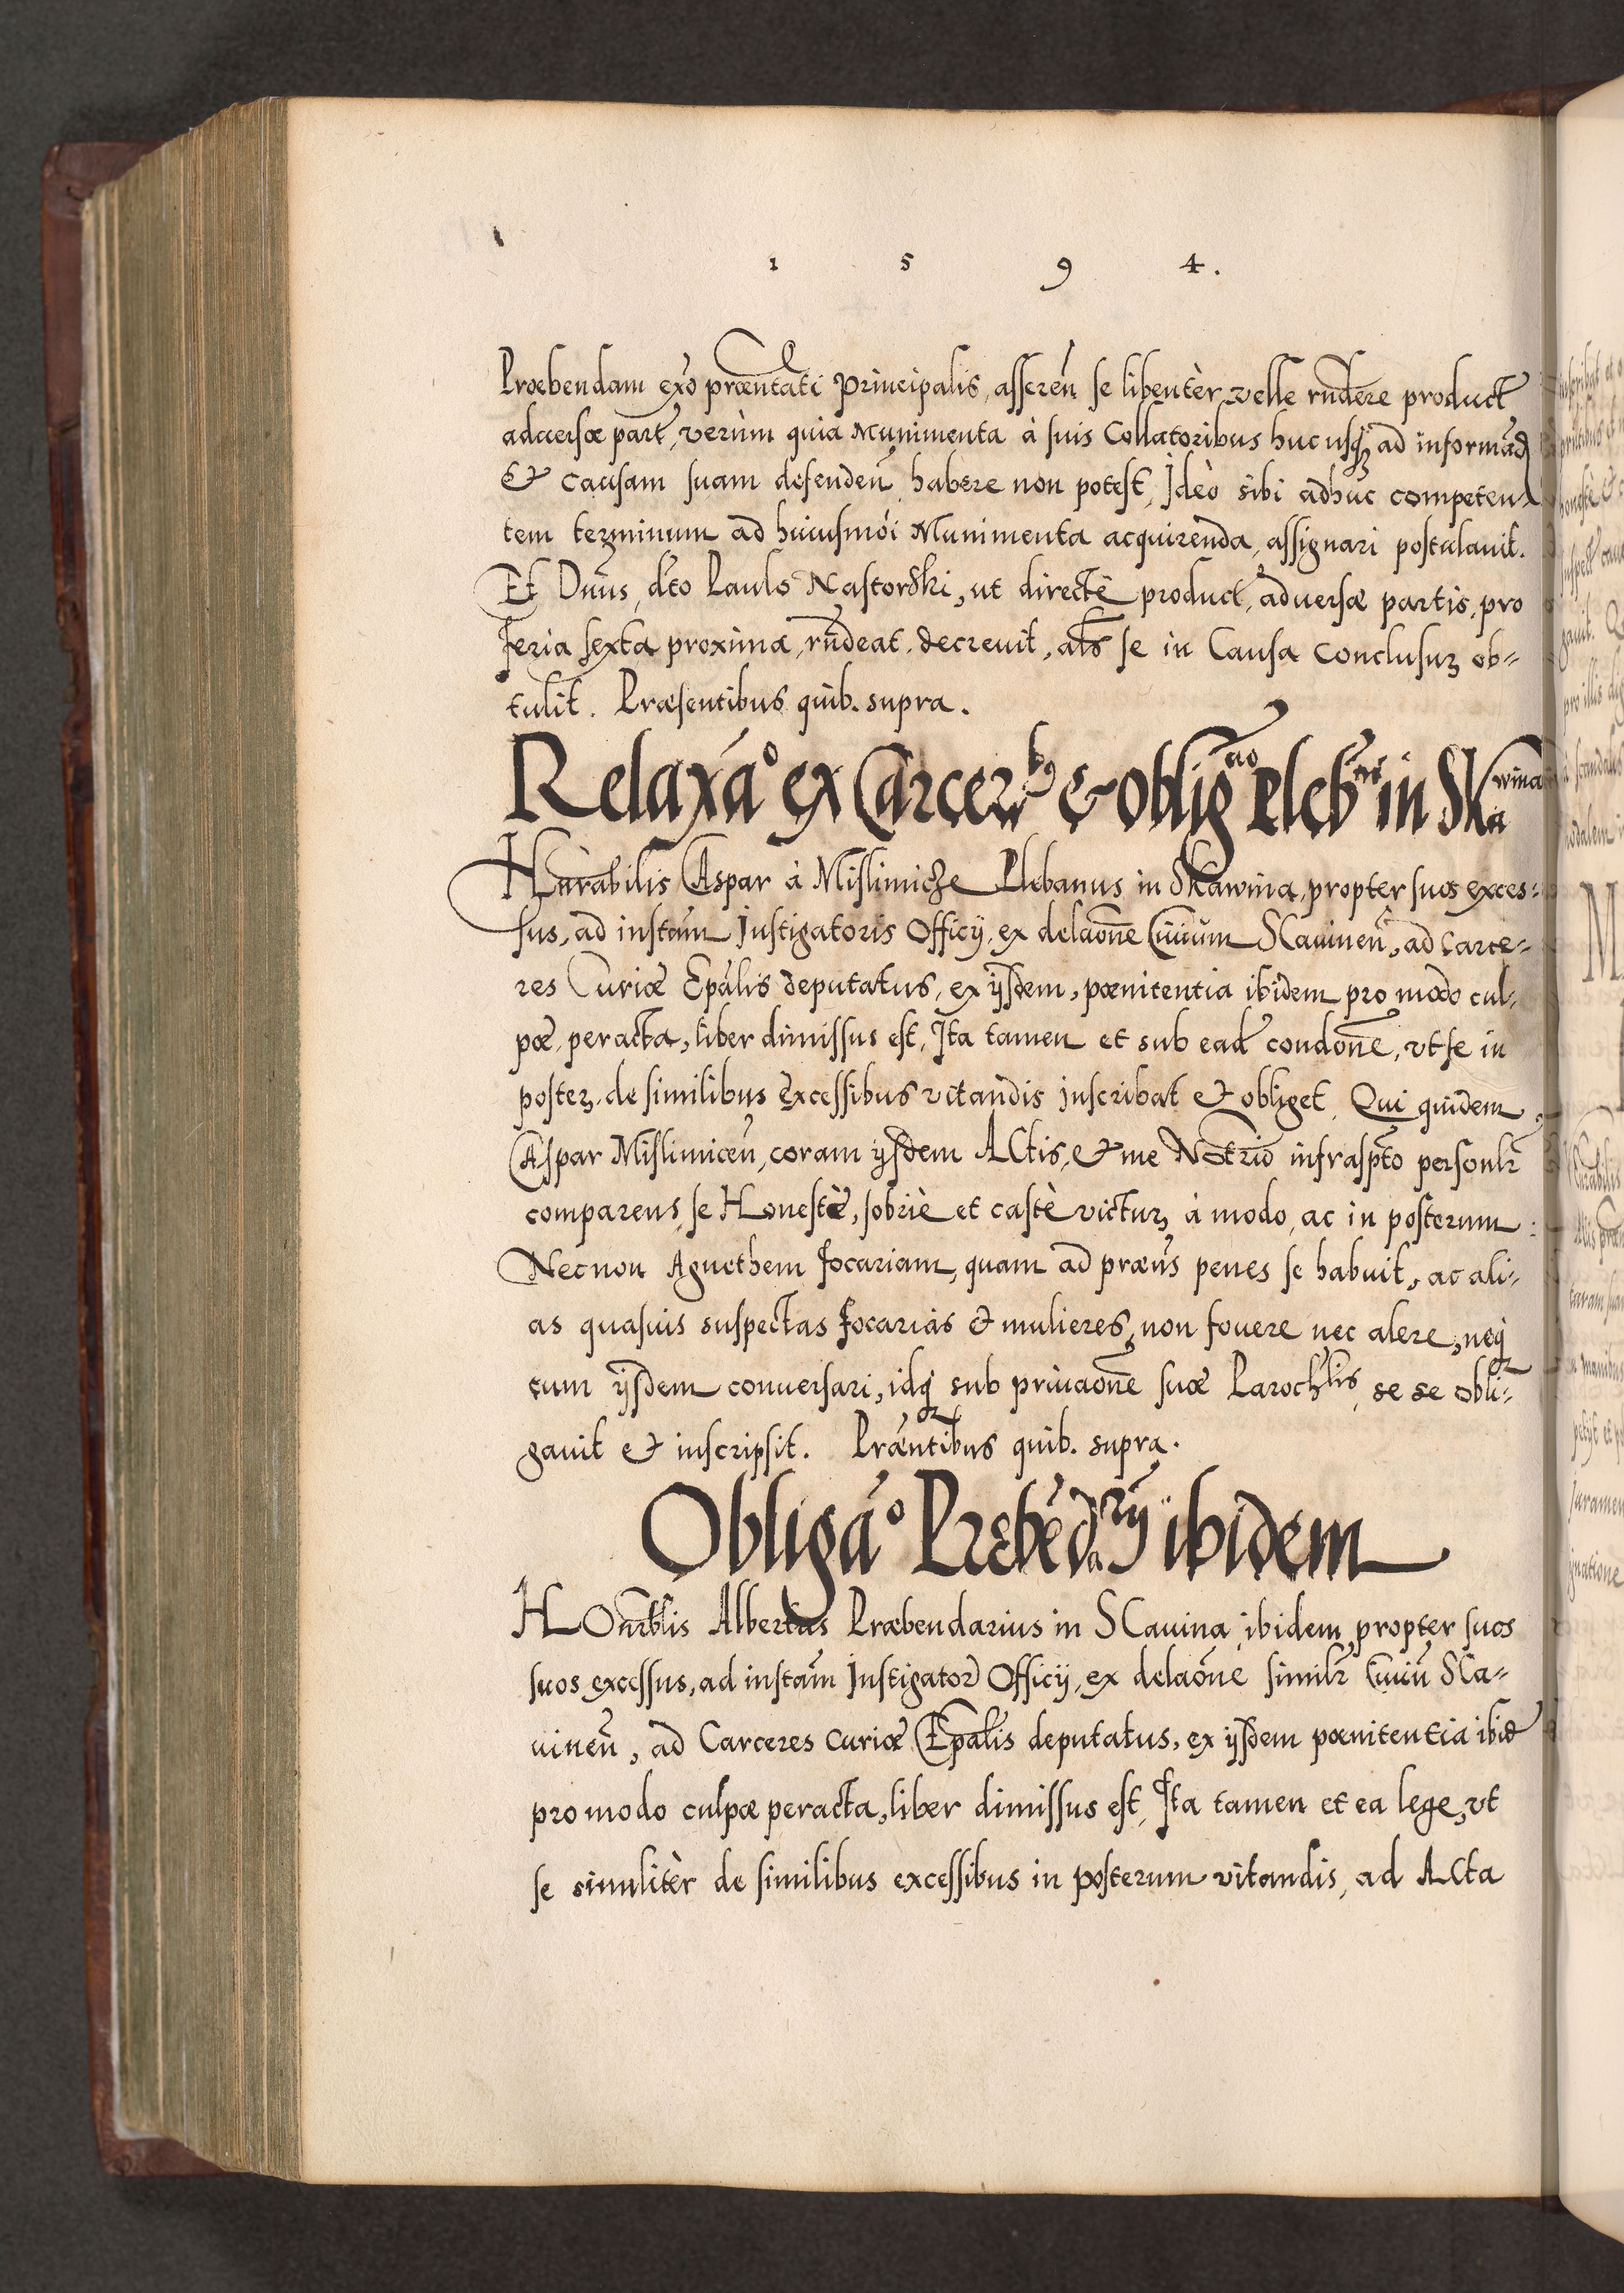 1 5 9 4.
Præbendam exo præntati Principalis, asseren̄ se libentèr velle rn̄dere product
aduersæ part, verùm quia Munimenta à suis Collatoribus hucusq; ad informād
& causam suam defenden̄ habere non potest, Ideò sibi adhuc competen-
tem terminum ad huiusmōi Munimenta acquirenda, assignari postulauit.
Et Dn̄us, dc̄to Paulo Nastorski, ut directè product, aduersæ partis, pro
feria sexta proxima, rn̄deat, decreuit, als se in Causa conclusuꝫ ob-
tulit. Præsentibus quib. supra.
Relaxāo ex Carcerbꝰ & obligāo Plebni in Skawina
Hnrābilis Caspar à Mislimicze Plebanus in Skawina, propter suos exces-
sus, ad instām Instigatoris Officÿ, ex delaōne Ciuium Scauinen̄, ad Carce-
res Curiæ Epālis deputatus, ex ÿsdem, pœnitentia ibidem pro modo cul-
pæ, peracta, liber dimissus est, Ita tamen et sub ead condōne, vt se in
posteꝝ de similibus excessibus vitandis inscribat & obliget, Qui quidem
Caspar Mislimicen̄, coram ÿsdem Actis, & me Notrio infrasp̄to personlr
comparens, se Honestè, sobriè et castè victuꝫ à modo, ac in posterum
Necnon Agnethem focariam, quam ad præn̄s penes se habuit, ac ali-
as quasuis suspectas focarias & mulieres, non fouere nec alere, neq;
cum ÿsdem conuersari, idq; sub priuaōne suæ Parochlis, se se obli-
gauit & inscripsit. Præn̄tibus quib. supra.
Obligāo Prebēdarÿ ibidem
HOnrblis Albertus Præbendarius in Scauina, ibidem, propter suos
suos excessus, ad instām Instigator Officÿ, ex delaōne similr Ciuiū Sca-
uinen̄, ad Carceres Curiæ Epālis deputatus, ex ÿsdem pœnitentia ibid
pro modo culpæ peracta, liber dimissus est, Ita tamen et ea lege, vt
se similitèr de similibus excessibus in posterum vitandis, ad Acta